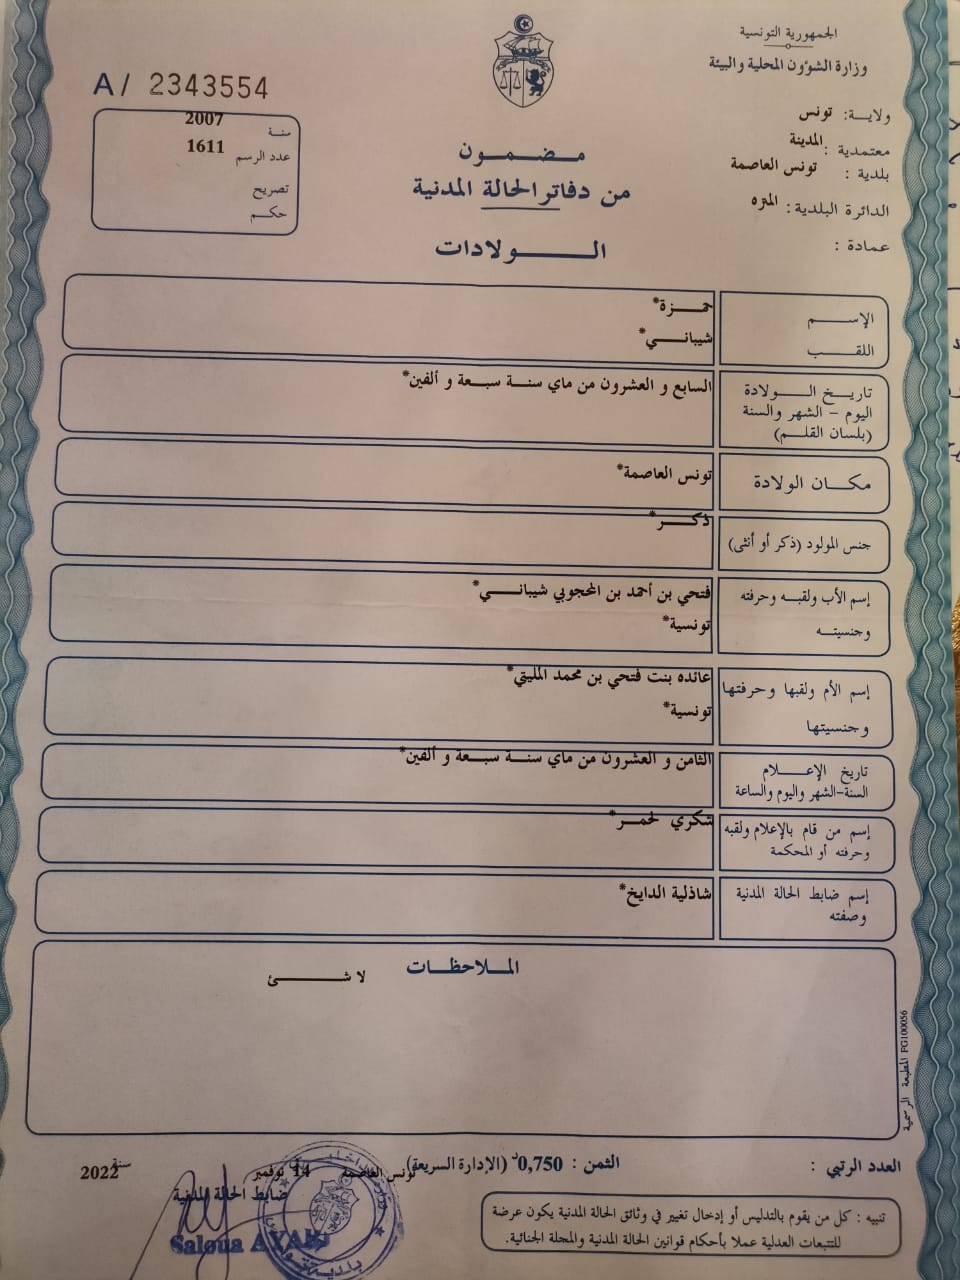 الجمهورية التونسية
وزارة الشؤون المحلية والبيئة
ولاية: تونس
معتمدية: المدينة
بلدية: تونس العاصمة
الدائرة البلدية: المنزه
عمادة:
A/ 2343554
سنة 2007
عدد الرسم 1611
تصريح
حكم
مضمون
من دفاتر الحالة المدنية
الولادات
الإسم حمزة*
اللقب شيباني*
تاريخ الولادة السابع و العشرون من ماي سنة سبعة و ألفين*
اليوم - الشهر والسنة
(بلسان القلم)
مكان الولادة تونس العاصمة*
جنس المولود (ذكر أو أنثى) ذكر*
إسم الأب ولقبه وحرفته فتحي بن أحمد بن المحجوبي شيباني*
وجنسيته تونسية*
إسم الأم ولقبها وحرفتها عائده بنت فتحي بن محمد المليتي*
وجنسيتها تونسية*
تاريخ الإعلام الثامن و العشرون من ماي سنة سبعة و ألفين*
السنة-الشهر واليوم والساعة
إسم من قام بالإعلام ولقبه شكري لحمر*
وحرفته أو المحكمة
إسم ضابط الحالة المدنية شاذلية الدايخ*
وصفته
الملاحظات
لا شئ
المطبعة الرسمية FG100056
العدد الرتبي :
الثمن : 0,750د (الإدارة السريعة)
تونس العاصمة 14 نوفمبر سنة 2022
ضابط الحالة المدنية
Saloua
تنبيه : كل من يقوم بالتدليس أو إدخال تغيير في وثائق الحالة المدنية يكون عرضة
للتتبعات العدلية عملا بأحكام قوانين الحالة المدنية والمجلة الجنائية.